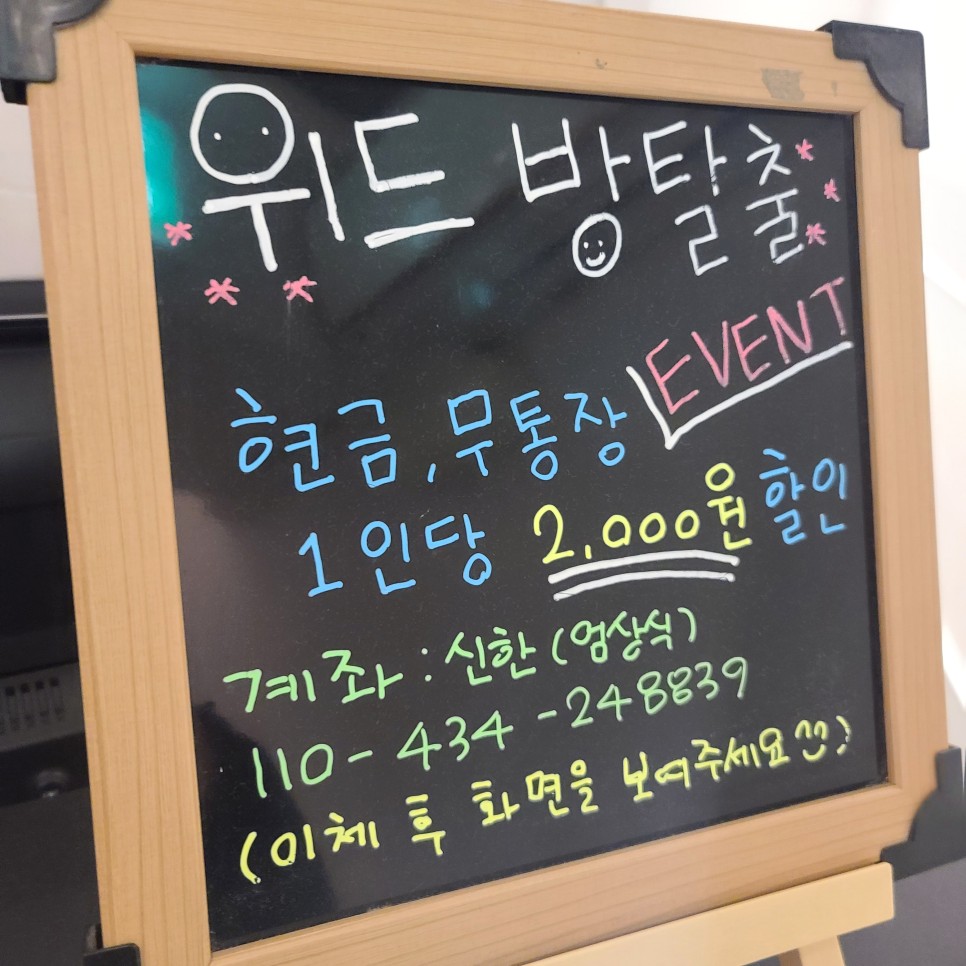 위드 방탈출
EVENT
현금, 무통장
1인당 2,000원 할인
계좌 : 신한 (엄상식)
110-434-248839
(이체 후 화면을 보여주세요^^)